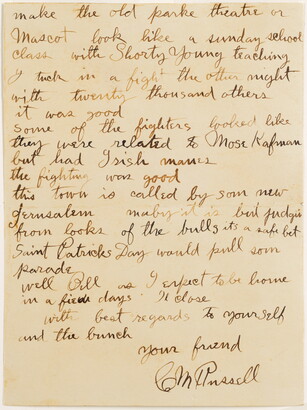 make the old parke theatre or
Mascot look like a sunday school
class with Shorty Young teaching
I tuck in a fight the other night
with twenty thousand others
it was good
Some of the fighters looked like
they were related to Mose Kafman
but had Irish names
the fighting was good
this town is called by som new
Jerusalem maby it is but judgin
from looks of the bulls its a safe bet
Saint Patricks Day would pull som
parade
well Bill as I expect to be home
in a few days Il close
with best regards to yourself
and the bunch
your friend
CM Russell